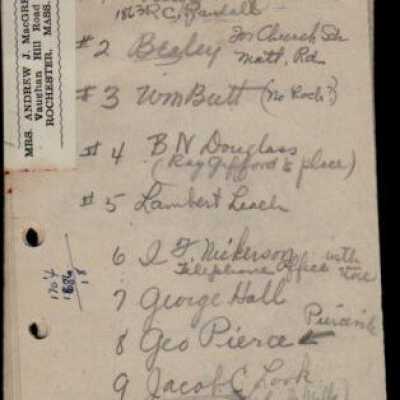 MRS. ANDREW J. MacGRE
Vaughan Hill Road
ROCHESTER, MASS.
1863 R. C. Randall
#2 Besley For Church Sch
Matt. Rd
#3 Wm Butt (No Roch?)
#4 B N Douglass
(Ray Gifford's place)
#5 Lambert Leach
6 I. F. Nickerson with
Telephone Office store
7 George Hall
8 Geo Pierce ← Pierceville
9 Jacob C Look
1704
1886
18